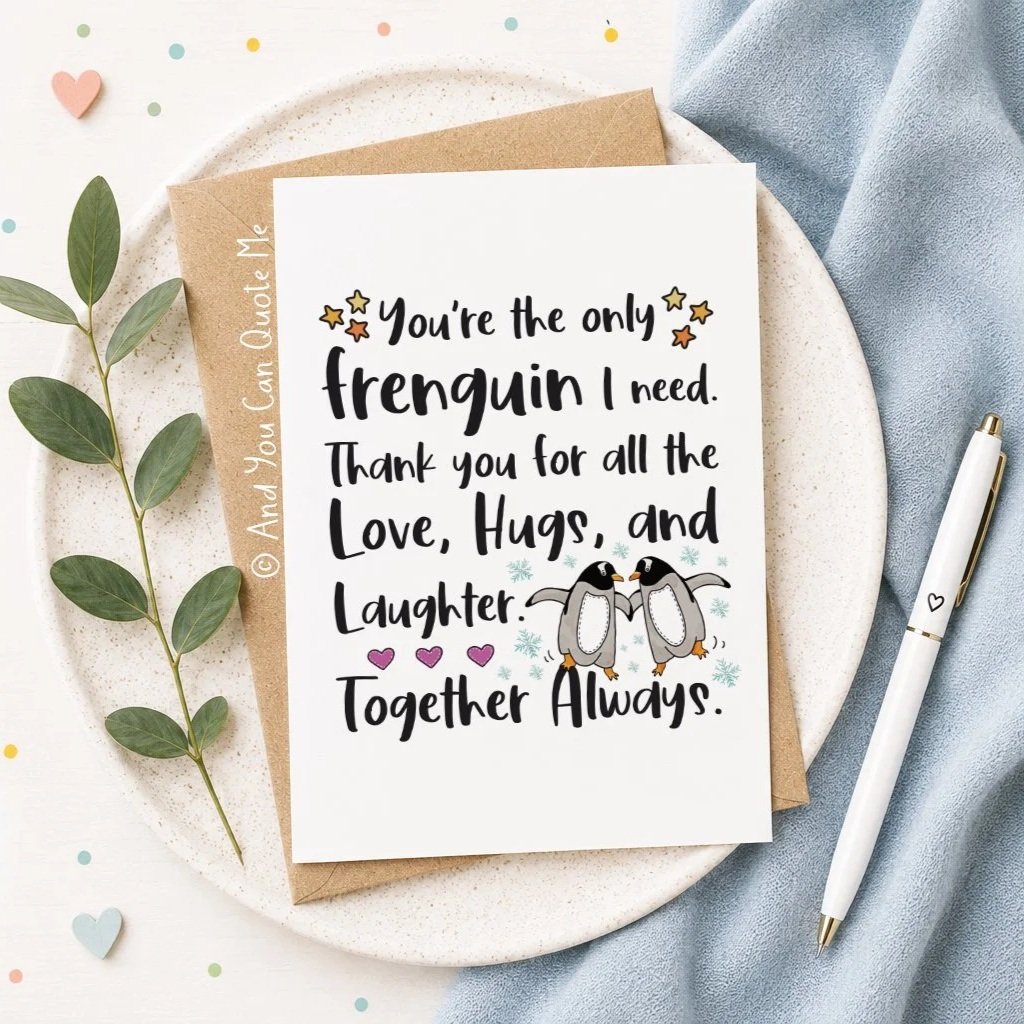 You're the only
frenguin I need.
Thank you for all the
Love, Hugs, and
Laughter.
Together Always.
© And You Can Quote Me